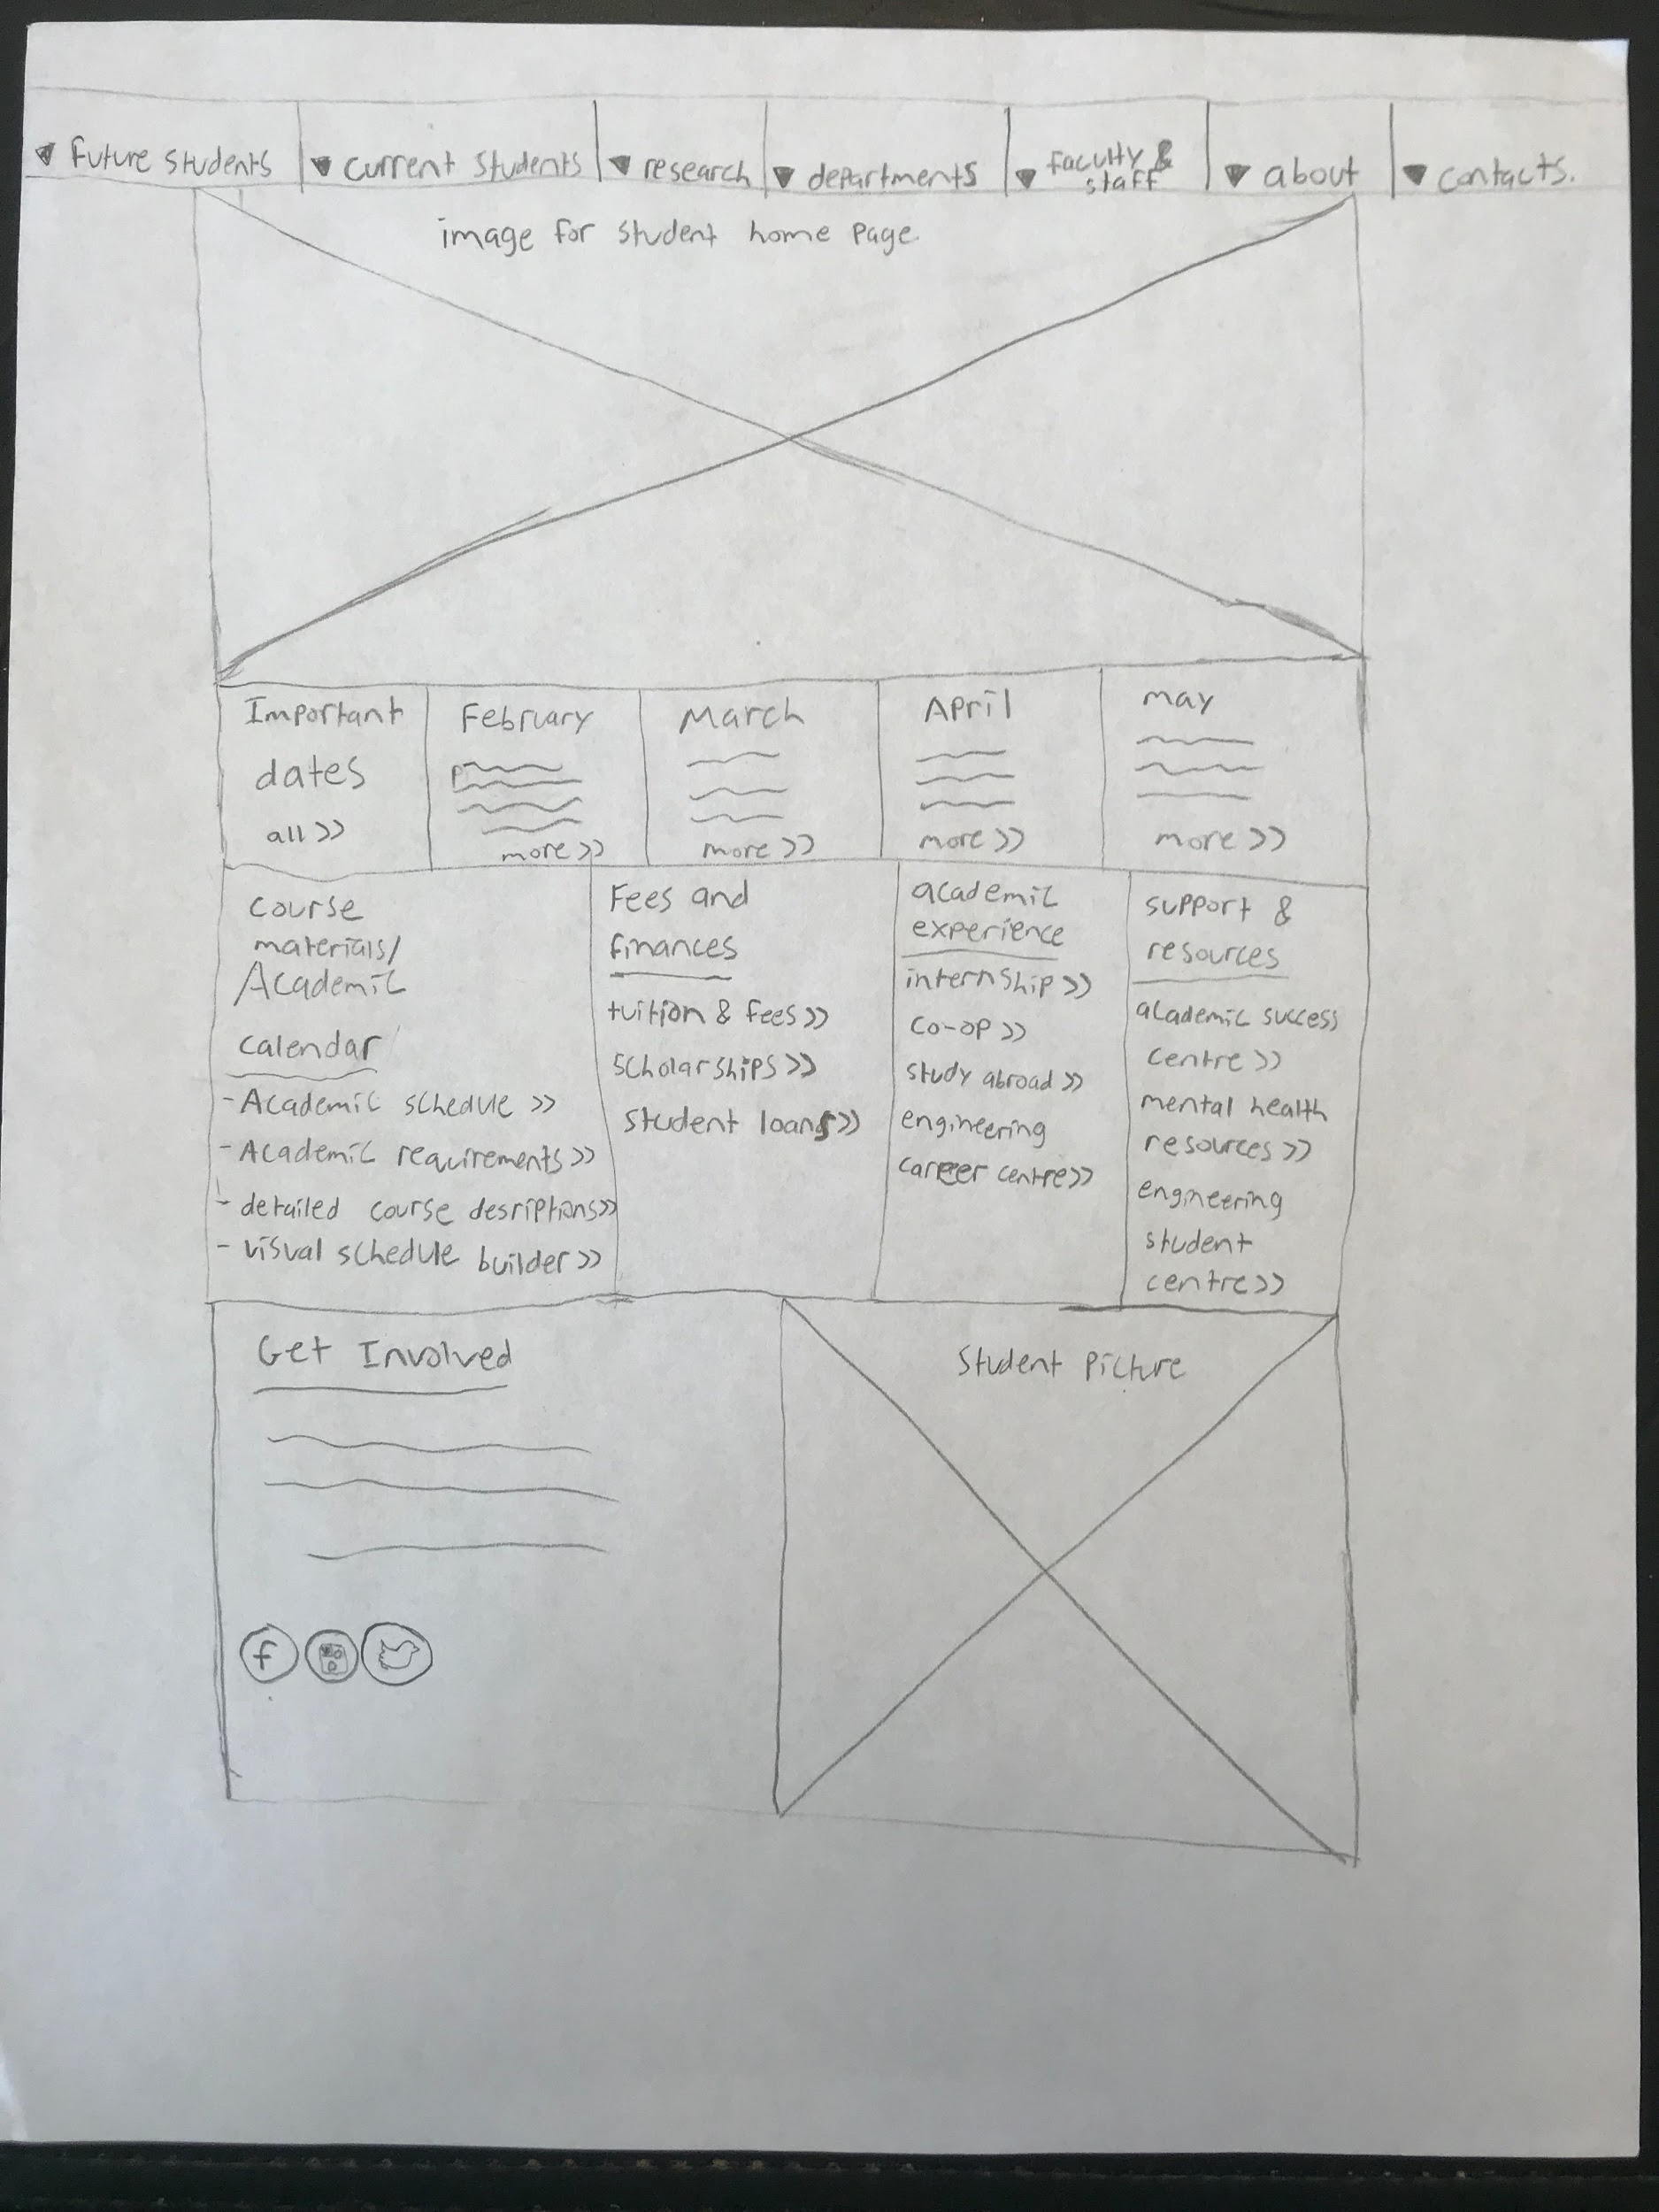 future students
current students
research
departments
faculty &
staff
about
contacts.
image for student home page
Important
dates
all >>
February
more >>
March
more >>
April
more >>
may
more >>
course
materials/
Academic
calendar
- Academic schedule >>
- Academic requirements >>
- detailed course desriptions >>
- visual schedule builder >>
Fees and
finances
tuition & fees >>
scholarships >>
student loans >>
academic
experience
internship >>
co-op >>
study abroad >>
engineering
career centre >>
support &
resources
academic success
centre >>
mental health
resources >>
engineering
student
centre >>
Get Involved
f
Student Picture